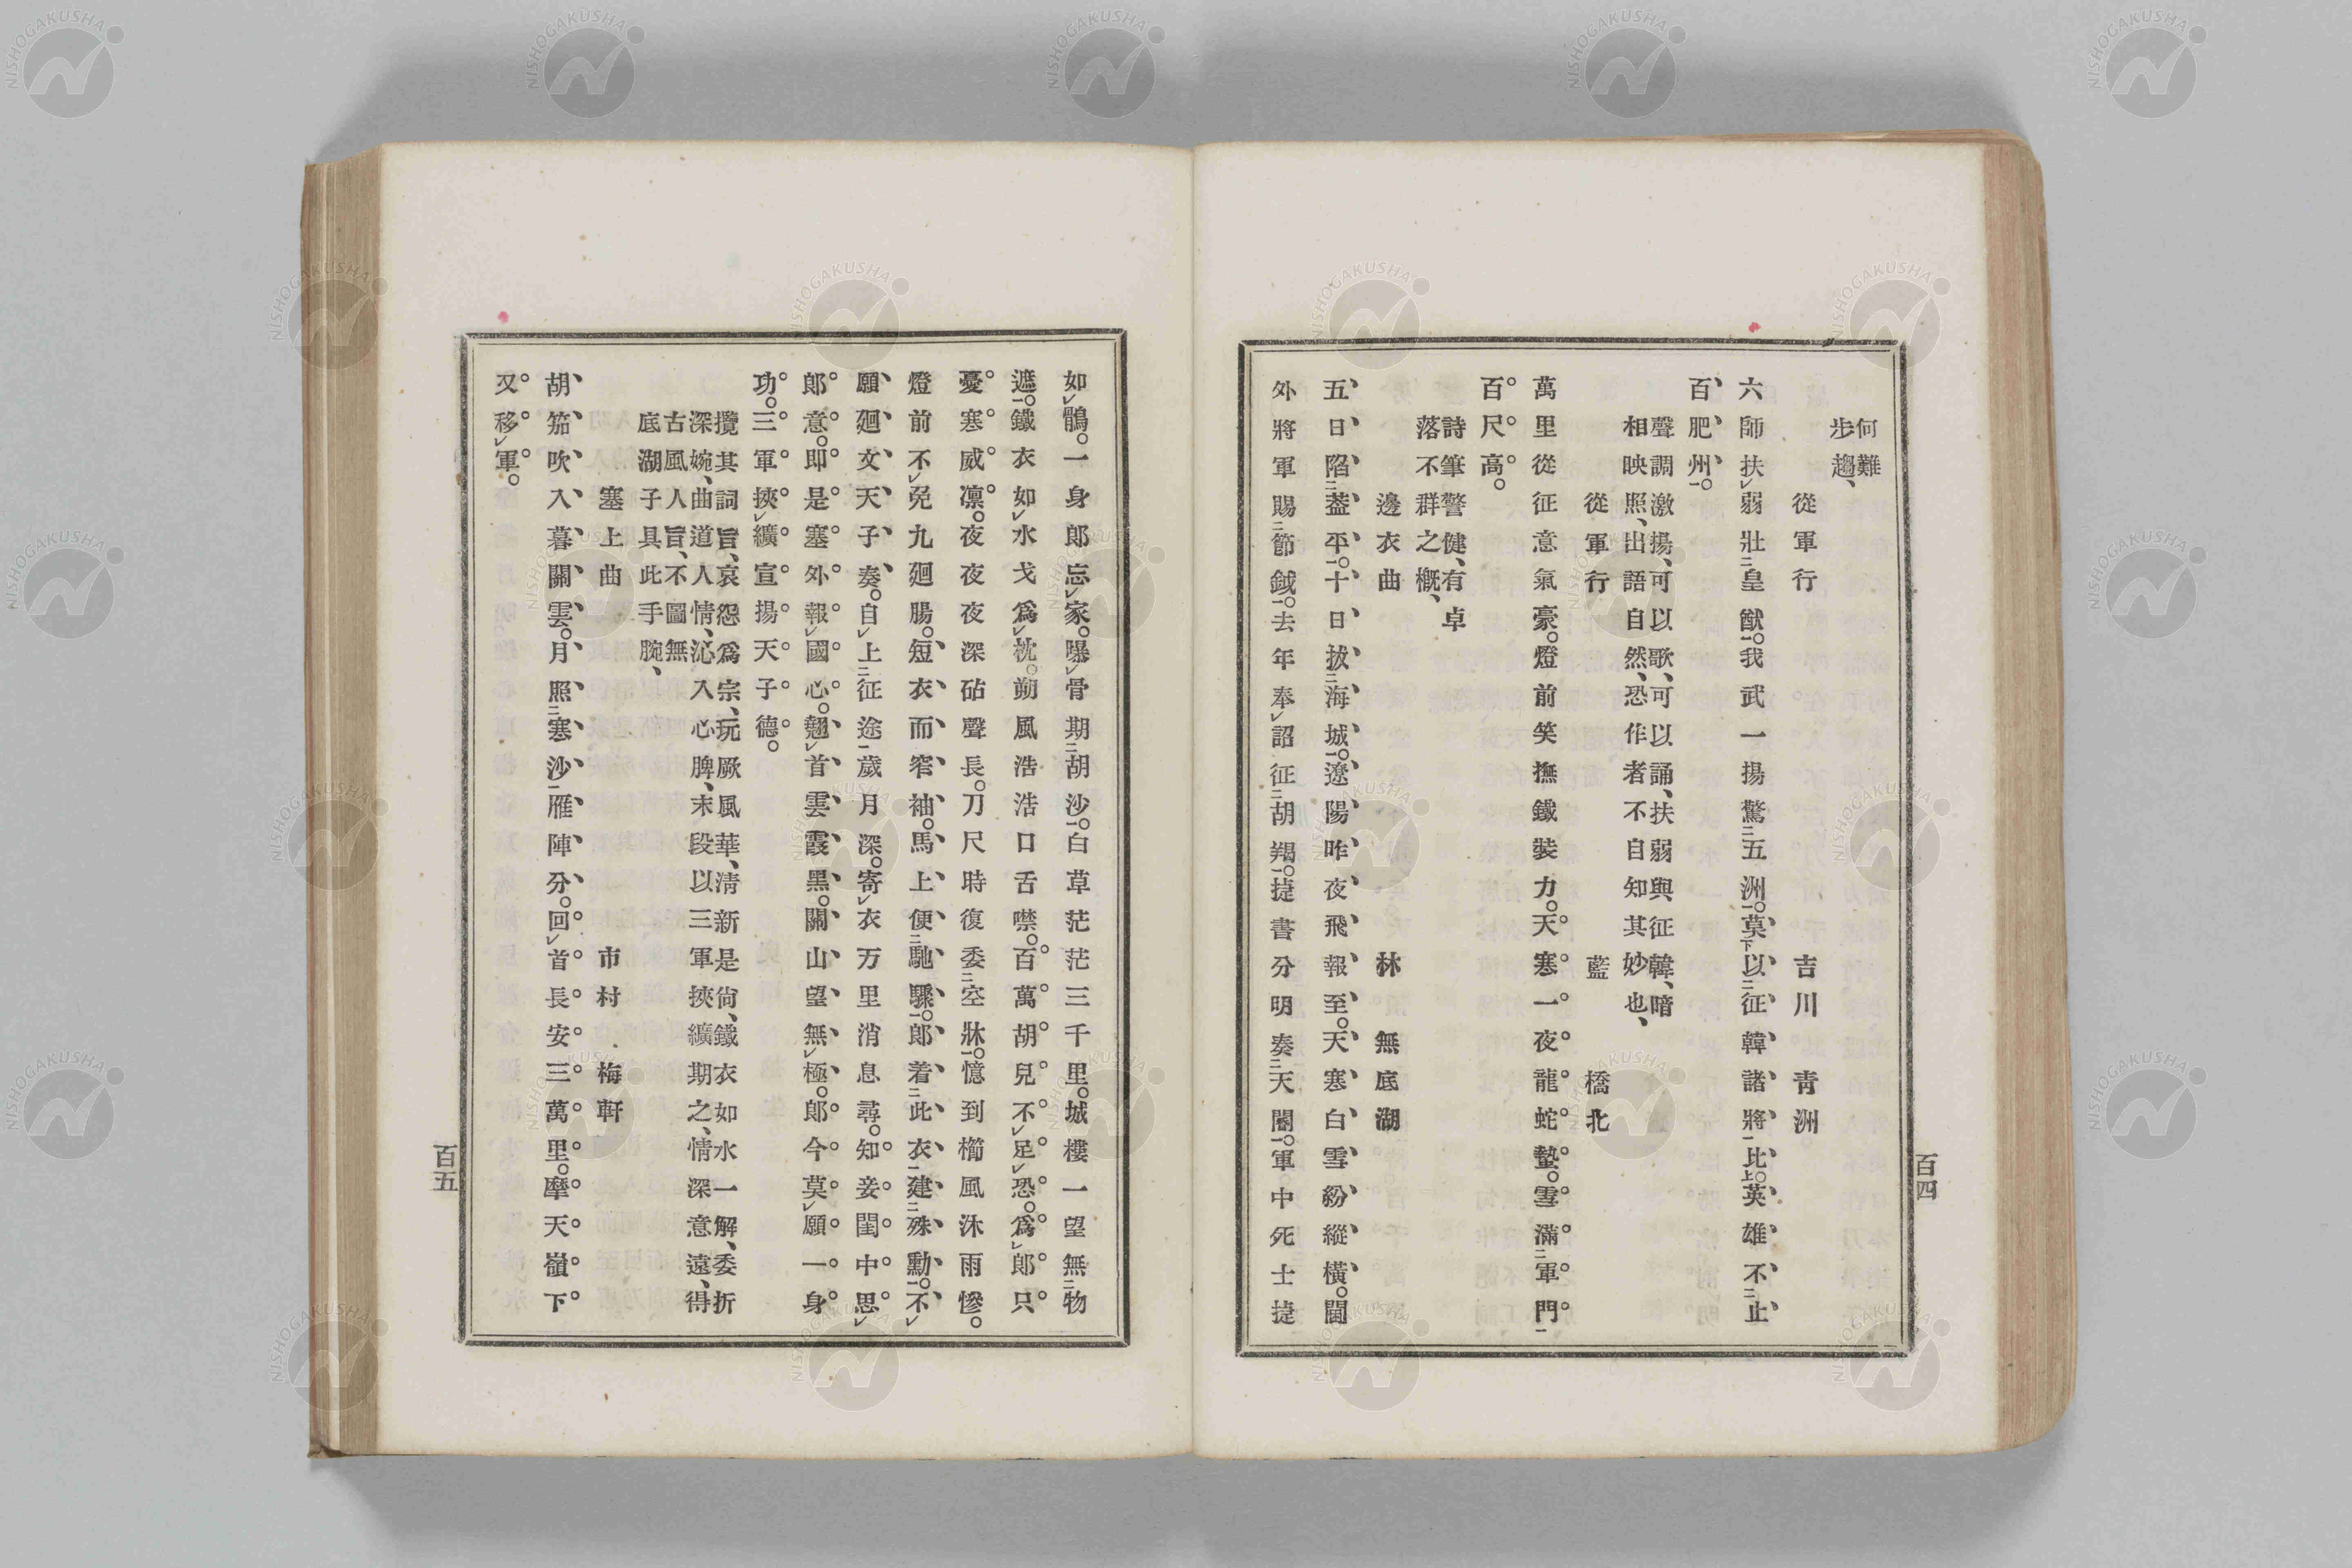 何難
步趨、
從軍行 吉川青洲
六師扶弱壯皇猷。我武一揚驚五洲。莫以征韓諸將比。英雄不止
百肥州。
聲調激揚、可以歌、可以誦、扶弱與征韓、暗
相映照、出語自然、恐作者不自知其妙也、
從軍行 藍橋北
萬里從征意氣豪。燈前笑撫鐵裝刀。天寒一夜龍蛇蟄。雪滿軍門
百尺高。
詩筆警健、有卓
落不群之概、
邊衣曲 林無底湖
五日陷蓋平。十日拔海城。遼陽昨夜飛報至。天寒白雪紛縱橫。閫
外將軍賜節鉞。去年奉詔征胡羯。捷書分明奏天闕。軍中死士捷
百四
如鶻。一身郎忘家。曝骨期胡沙。白草茫茫三千里。城樓一望無物
遮。鐵衣如水戈爲枕。朔風浩浩口舌噤。百萬胡兒不足恐。爲郎只
憂塞威凛。夜夜夜深砧聲長。刀尺時復委空牀。憶到櫛風沐雨慘。
燈前不免九廻腸。短衣而窄袖。馬上便馳驟。郎着此衣建殊勳。不
願廻文天子奏。自上征途歲月深。寄衣万里消息尋。知妾閨中思
郎意。即是塞外報國心。翹首雲霞黑。關山望無極。郎今莫願一身
功。三軍挾纊宣揚天子德。
攬其詞旨、哀怨爲宗、玩厥風華、淸新是尙、鐵衣如水一解、委折
深婉、曲道人情、沁入心脾、末段以三軍挾纊期之、情深意遠、得
古風人旨、不圖無
底湖子具此手腕、
塞上曲 市村梅軒
胡笳吹入暮關雲。月照塞沙雁陣分。回首長安三萬里。摩天嶺下
又移軍。
百五